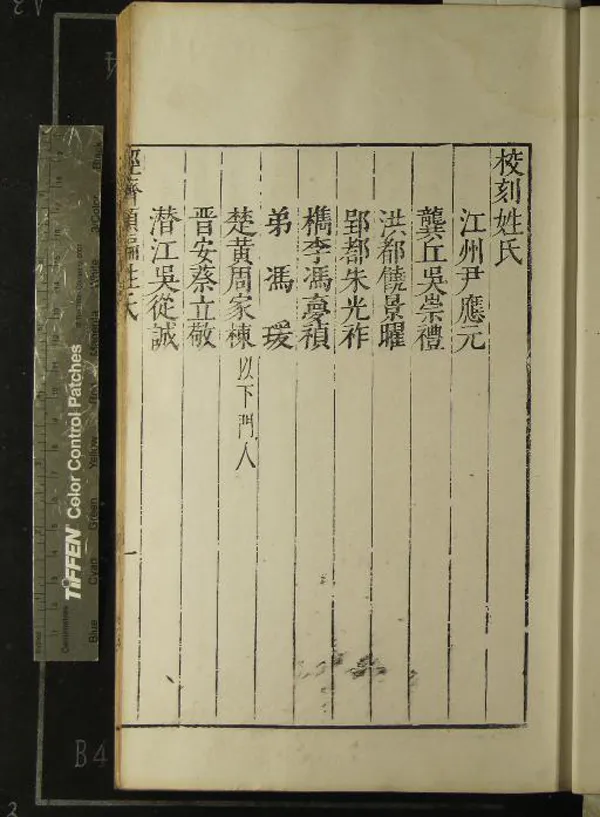 校刻姓氏
江州尹應元
龔丘吳崇禮
洪都饒景曜
郢都朱光祚
檇李馮夢禎
弟馮瑗
楚黃周家棟以下門人
晉安蔡立敬
潛江吳從誠
經濟類編姓氏
TIFFEN Color Control Patches
Blue Cyan Green Yellow Red Magenta White 3/Color Black
Centimetres
Inches
B4